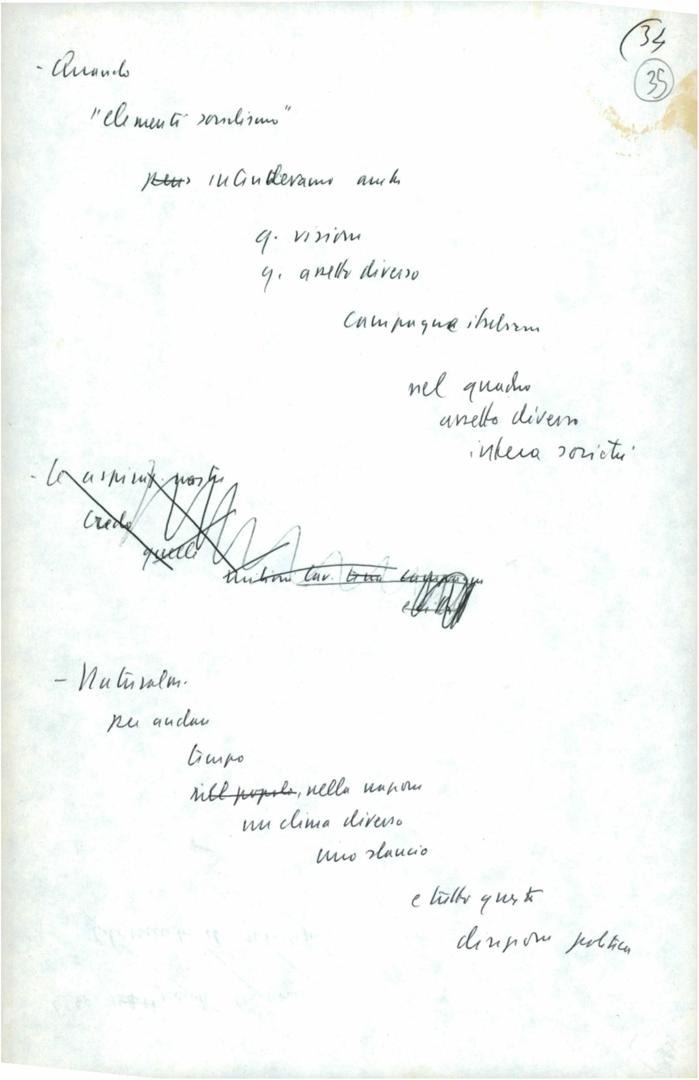 (34
35
- Quando
"elementi socialismo"
intendevamo anche
q. visione
q. assetto diverso
campagne italiane
nel quadro
assetto diverso
intera società
- Le aspiraz. nostre
credo
quelle
milioni lav. campagne
- Naturalm.
per andare
tempo
nell popolo, nella nazione
un clima diverso
uno slancio
e tutto questo
direzione politica